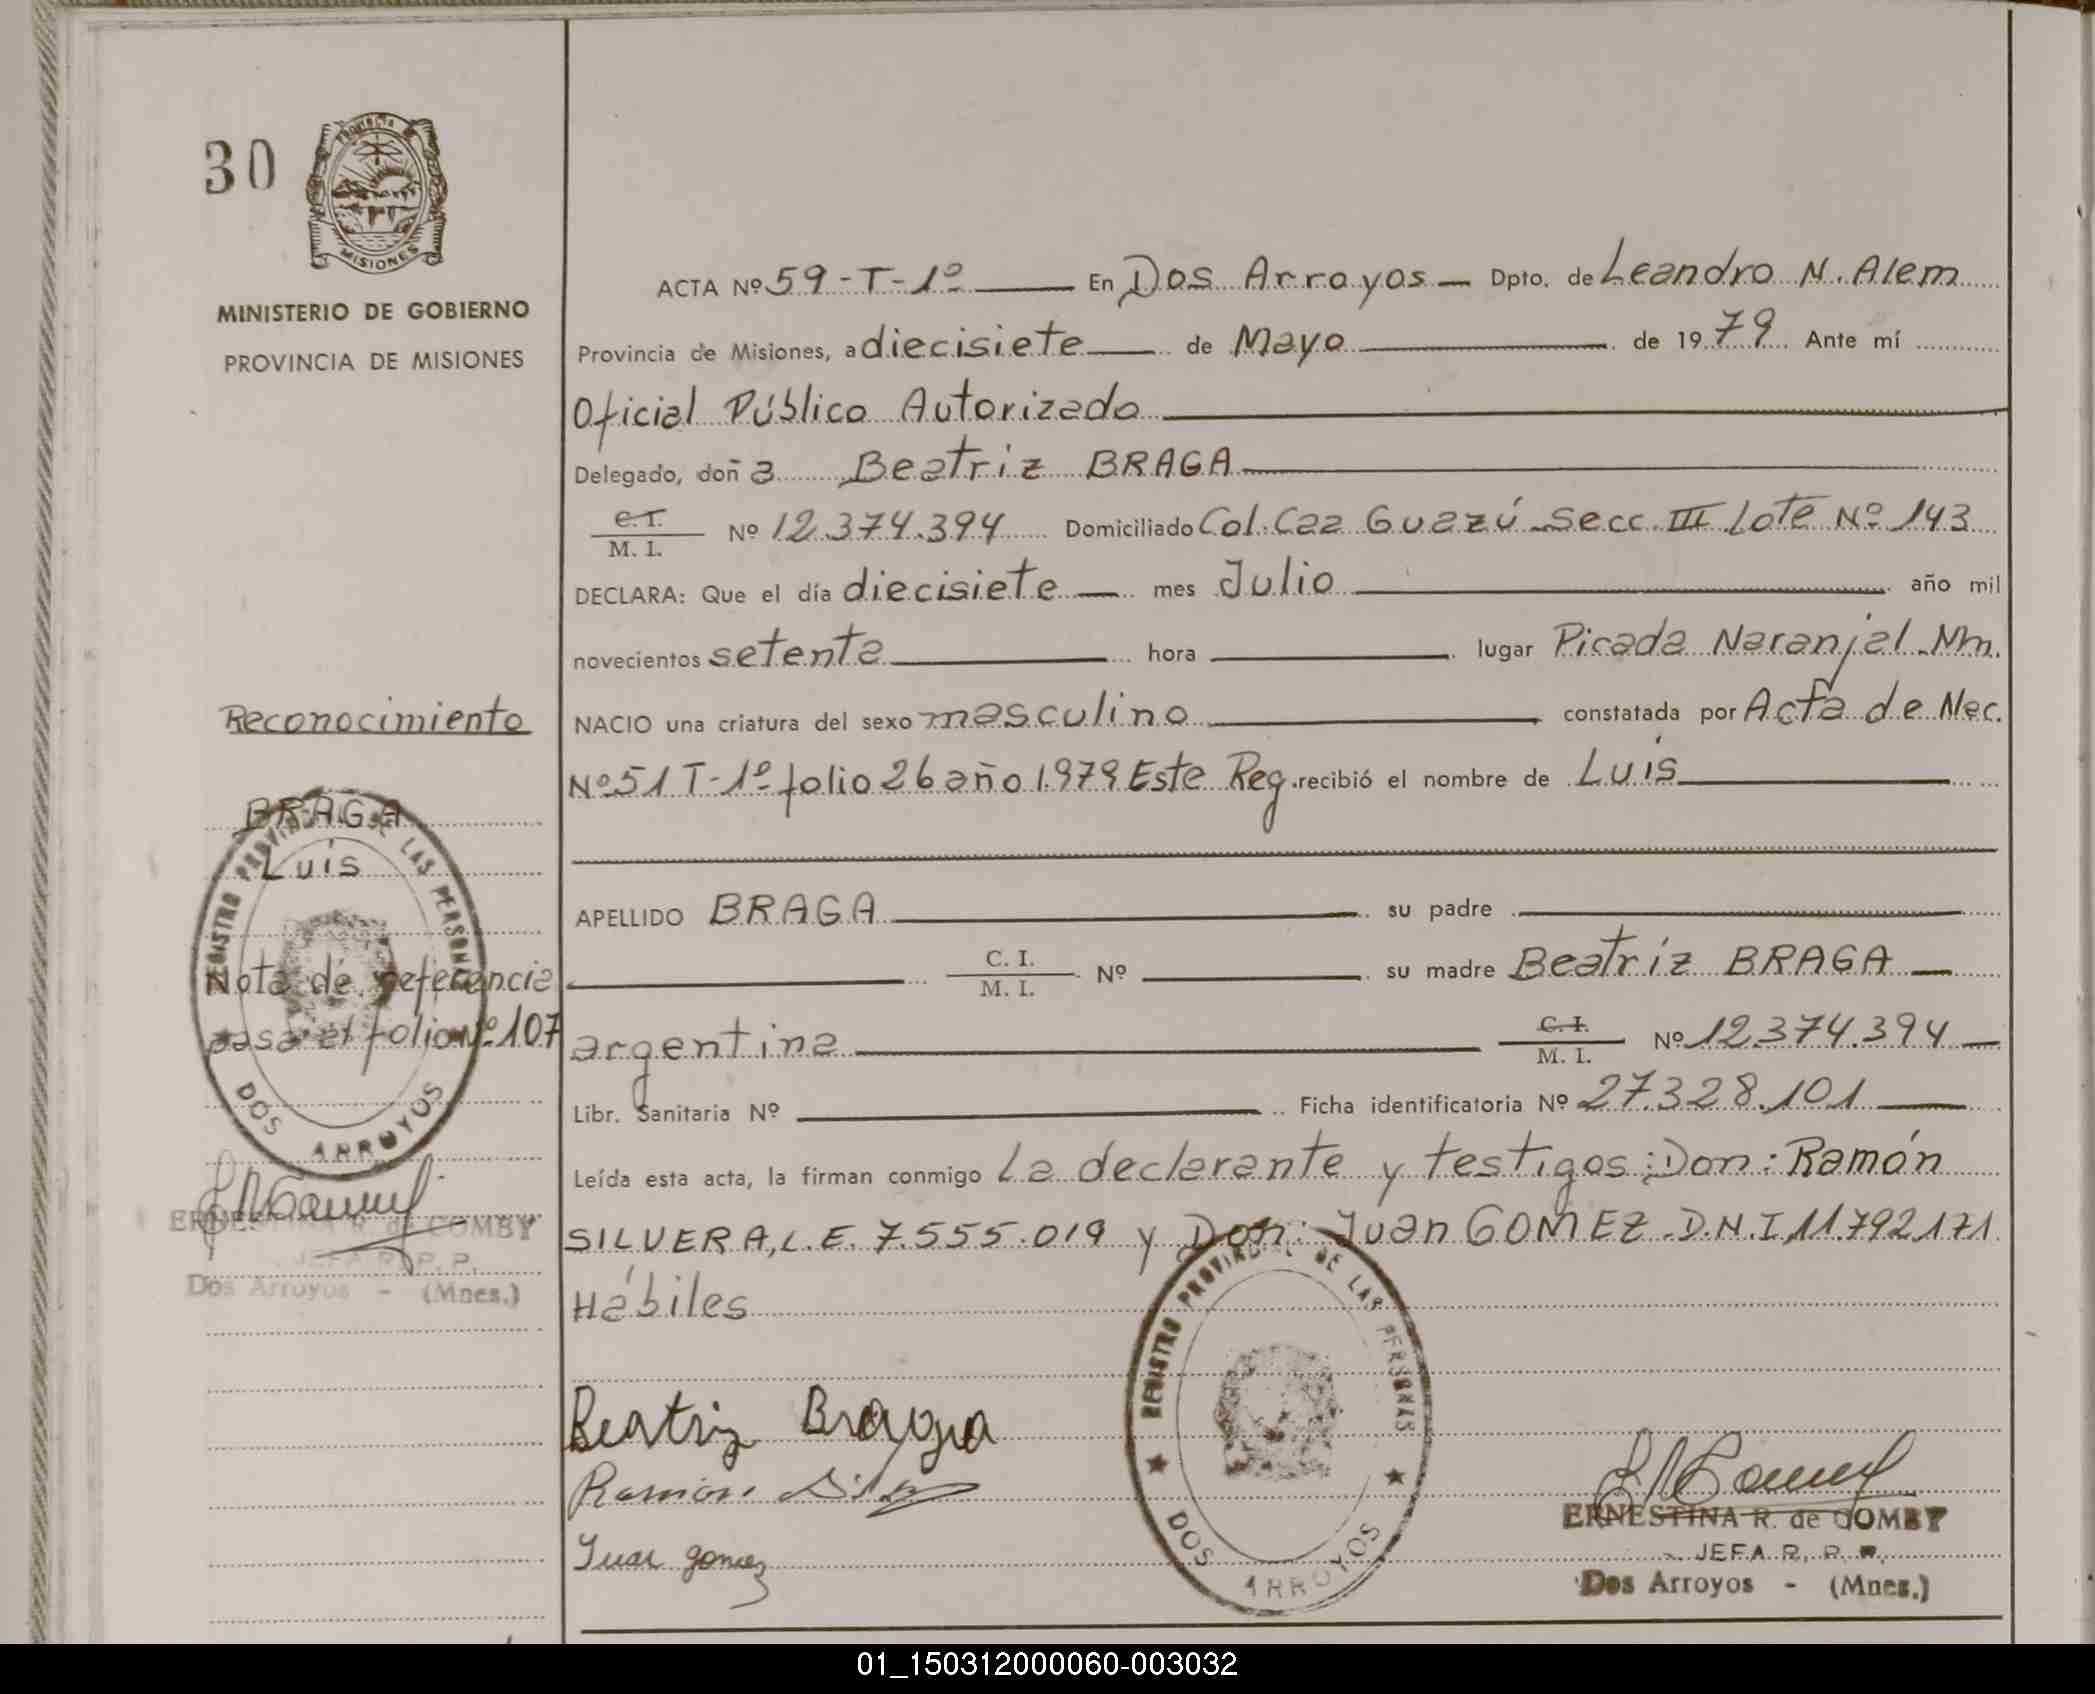 30
PROVINCIA DE
MISIONES
MINISTERIO DE GOBIERNO
PROVINCIA DE MISIONES
ACTA Nº 59-T-1º En Dos Arroyos Dpto. de Leandro N. Alem
Provincia de Misiones, a diecisiete de Mayo de 1979 Ante mí
Oficial Público Autorizado
Delegado, doña Beatriz BRAGA
C.I.
M. I. Nº 12.374.394 Domiciliado Col. Caa Guazú Secc. III Lote Nº 143
DECLARA: Que el día diecisiete mes Julio año mil
novecientos setenta hora lugar Picada Naranjal Mm.
NACIO una criatura del sexo masculino constatada por Acta de Nac.
Nº 51 T-1º folio 26 año 1.979 Este Reg. recibió el nombre de Luis
APELLIDO BRAGA su padre
C. I.
M. I. Nº su madre Beatriz BRAGA
argentina C. I.
M. I. Nº 12.374.394
Libr. Sanitaria Nº Ficha identificatoria Nº 27.328.101
Leída esta acta, la firman conmigo La declarante y testigos: Don: Ramón
SILVERA, L.E. 7.555.019 y Don: Juan GOMEZ. D.N.I, 11.792.171
Hábiles
Beatriz Braga
Ramón
Juan gomez
REGISTRO PROVINCIAL DE LAS PERSONAS
DOS ARROYOS
ERNESTINA R. de COMBY
JEFA R. P. P.
Dos Arroyos - (Mnes.)
Reconocimiento
BRAGA
Luis
Nota de referencia
pasa al folio Nº 107
REGISTRO PROVINCIAL DE LAS PERSONAS
DOS ARROYOS
ERNESTINA R. de COMBY
JEFA R. P. P.
Dos Arroyos - (Mnes.)
01_150312000060-003032